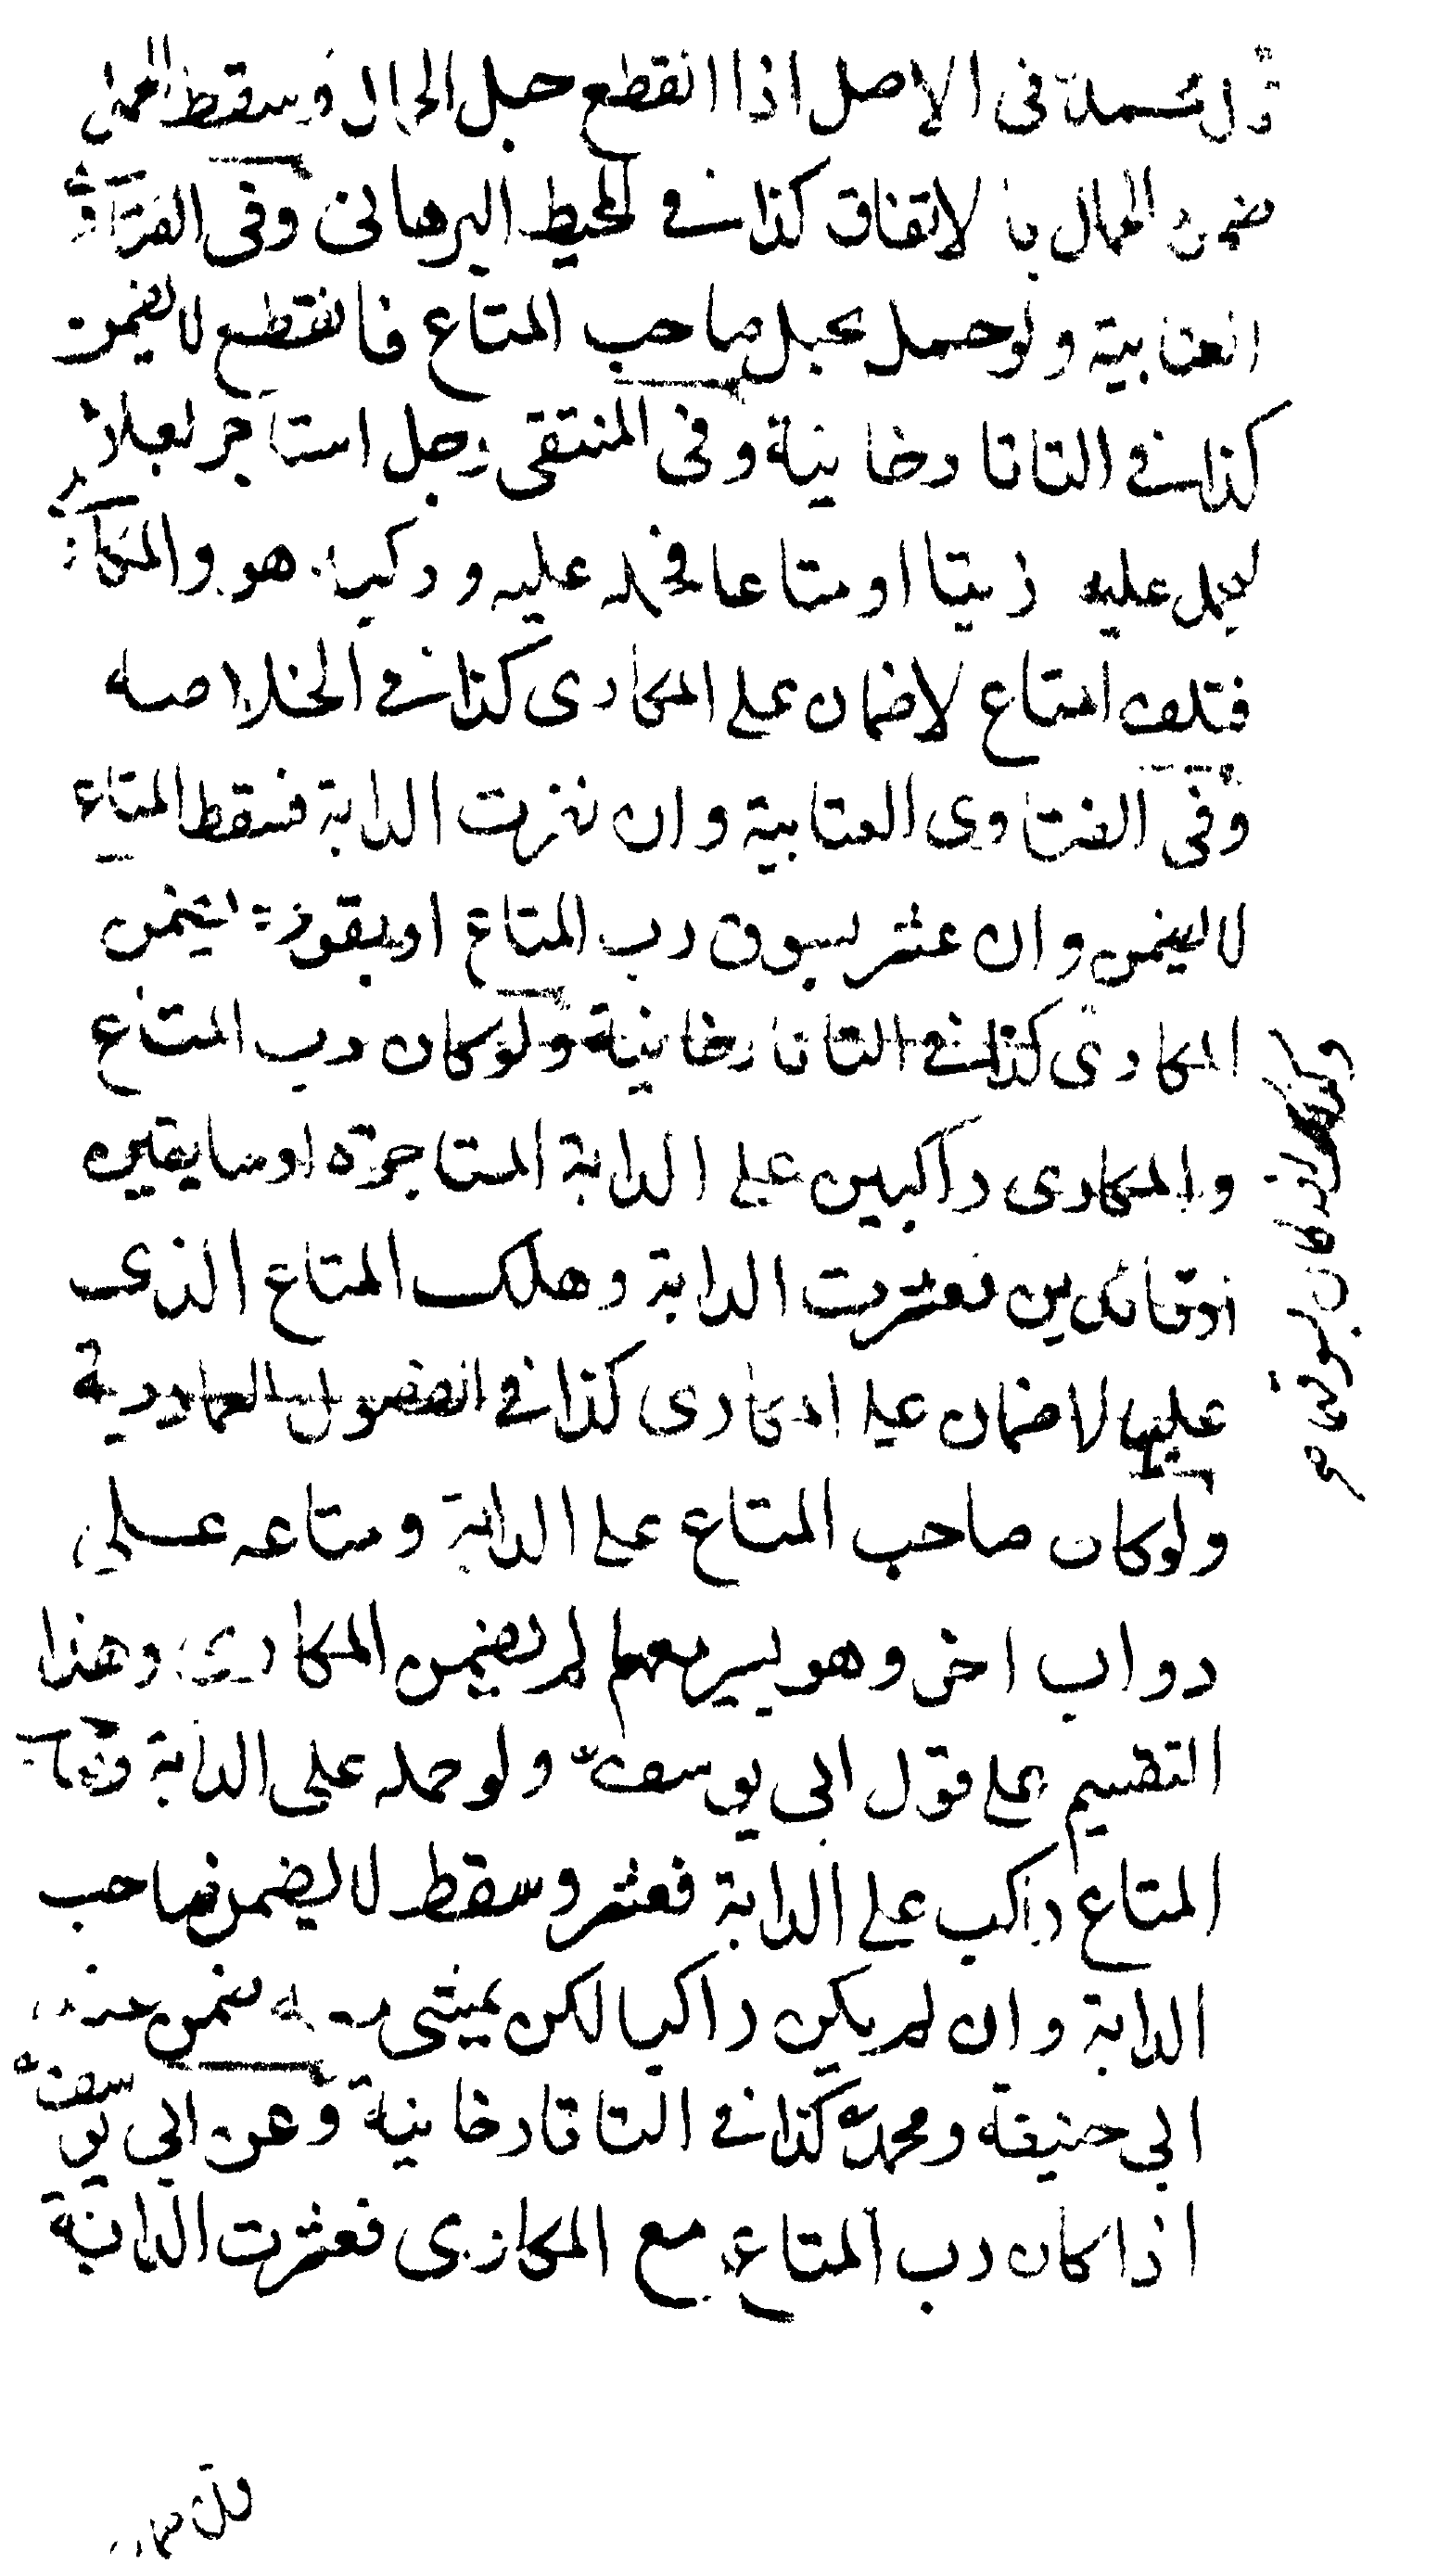 قال محمد فى الاصل اذا انقطع حبل الحمال وسقط الحمل
ضمن الحمال بالاتفاق كذا فى المحيط البرهانى وفى الفتاوى
العتابية ولو حمل بحبل صاحب المتاع فانقطع لا يضمن
كذا فى التاتارخانية وفى المنتقى رجل استاجر بغلا
ليحمل عليه زيتا او متاعا فحمله عليه وركب هو والمكارى
فتلف المتاع لا ضمان على المكارى كذا فى الخلاصه
وفى الفتاوى العتابية وان نفرت الدابة فسقط المتاع
لا يضمن وان عثر بسوق رب المتاع او بقوده يضمن
المكارى كذا فى التاتارخانية ولو كان رب المتاع
والمكارى راكبين على الدابة المستاجرة او سايقين
او قائدين فعثرت الدابة وهلك المتاع الذى
عليها لا ضمان على المكارى كذا فى الفصول العمادية
ولو كان صاحب المتاع على الدابة ومتاعه على
دواب اخرى وهو يسير معهما لم يضمن المكارى وهذا
التقسيم على قول ابى يوسف ولو حمله على الدابة
المتاع راكب على الدابة فعثر وسقط لا يضمن صاحب
الدابة وان لم يكن راكبا لكن يمشى معه يضمن عند
ابى حنيفة ومحمد كذا فى التاتارخانية وعن ابى يوسف
اذا كان رب المتاع مع المكارى فعثرت الدابة